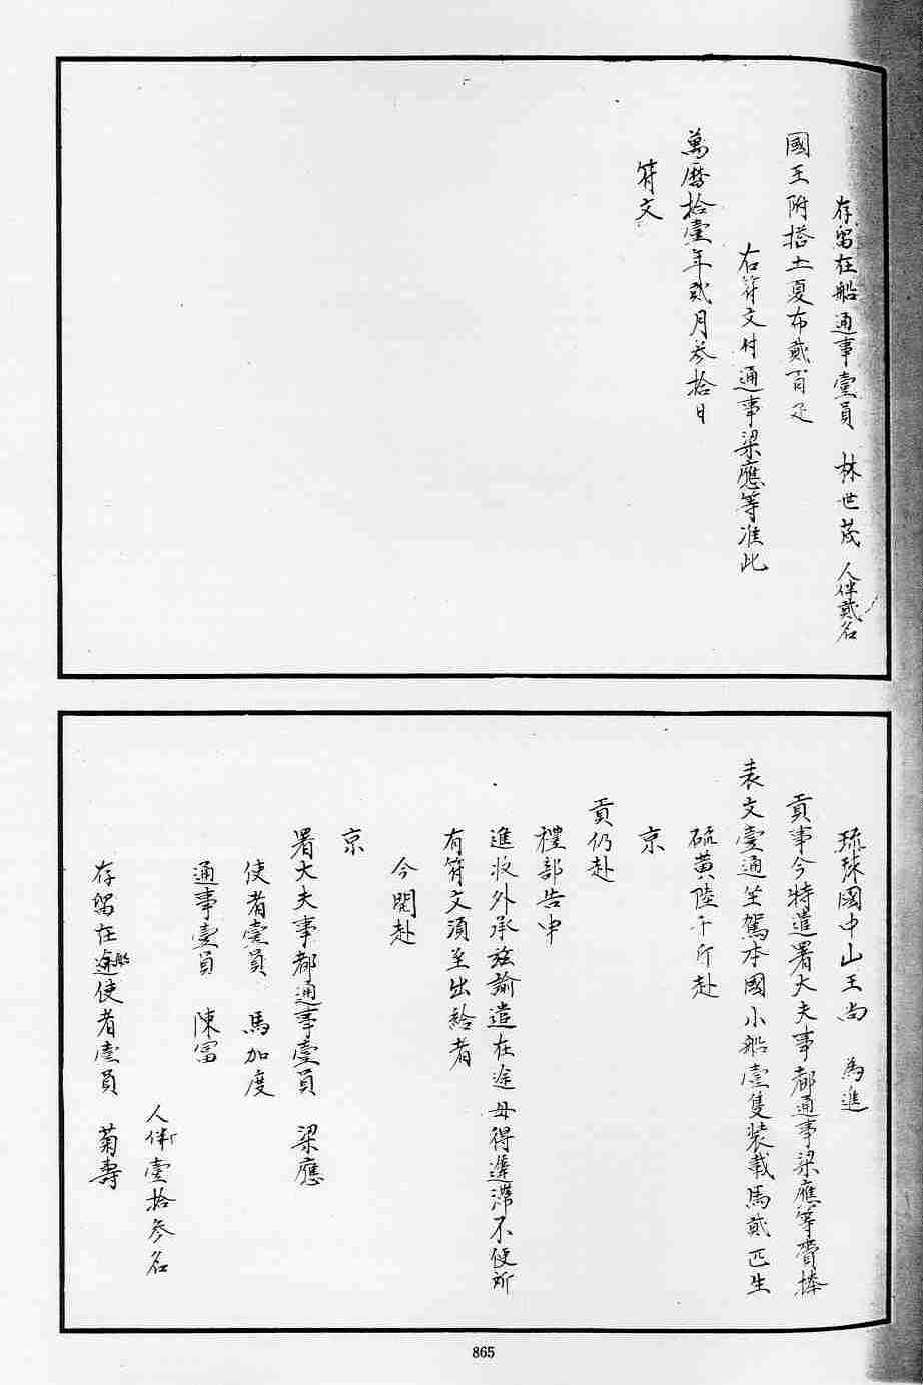 存留在船通事壹員　林世茂　人伴貳名
國王附搭土夏布貳百疋
右符文付通事梁應等准此
萬曆拾壹年貳月參拾日
符文
琉球國中山王尚　為進
貢事今特遣署大夫事都通事梁應等賫捧
表文壹通坐駕本國小船壹隻裝載馬貳匹生
硫黃陸千斤赴
京
貢仍赴
禮部告申
進收外承茲諭遣在途毋得遲滯不便所
有符文須至出給者
今開赴
京
署大夫事都通事壹員　梁應
使者壹員　馬加度
通事壹員　陳富
人伴壹拾參名
存留在途船使者壹員　菊壽
865